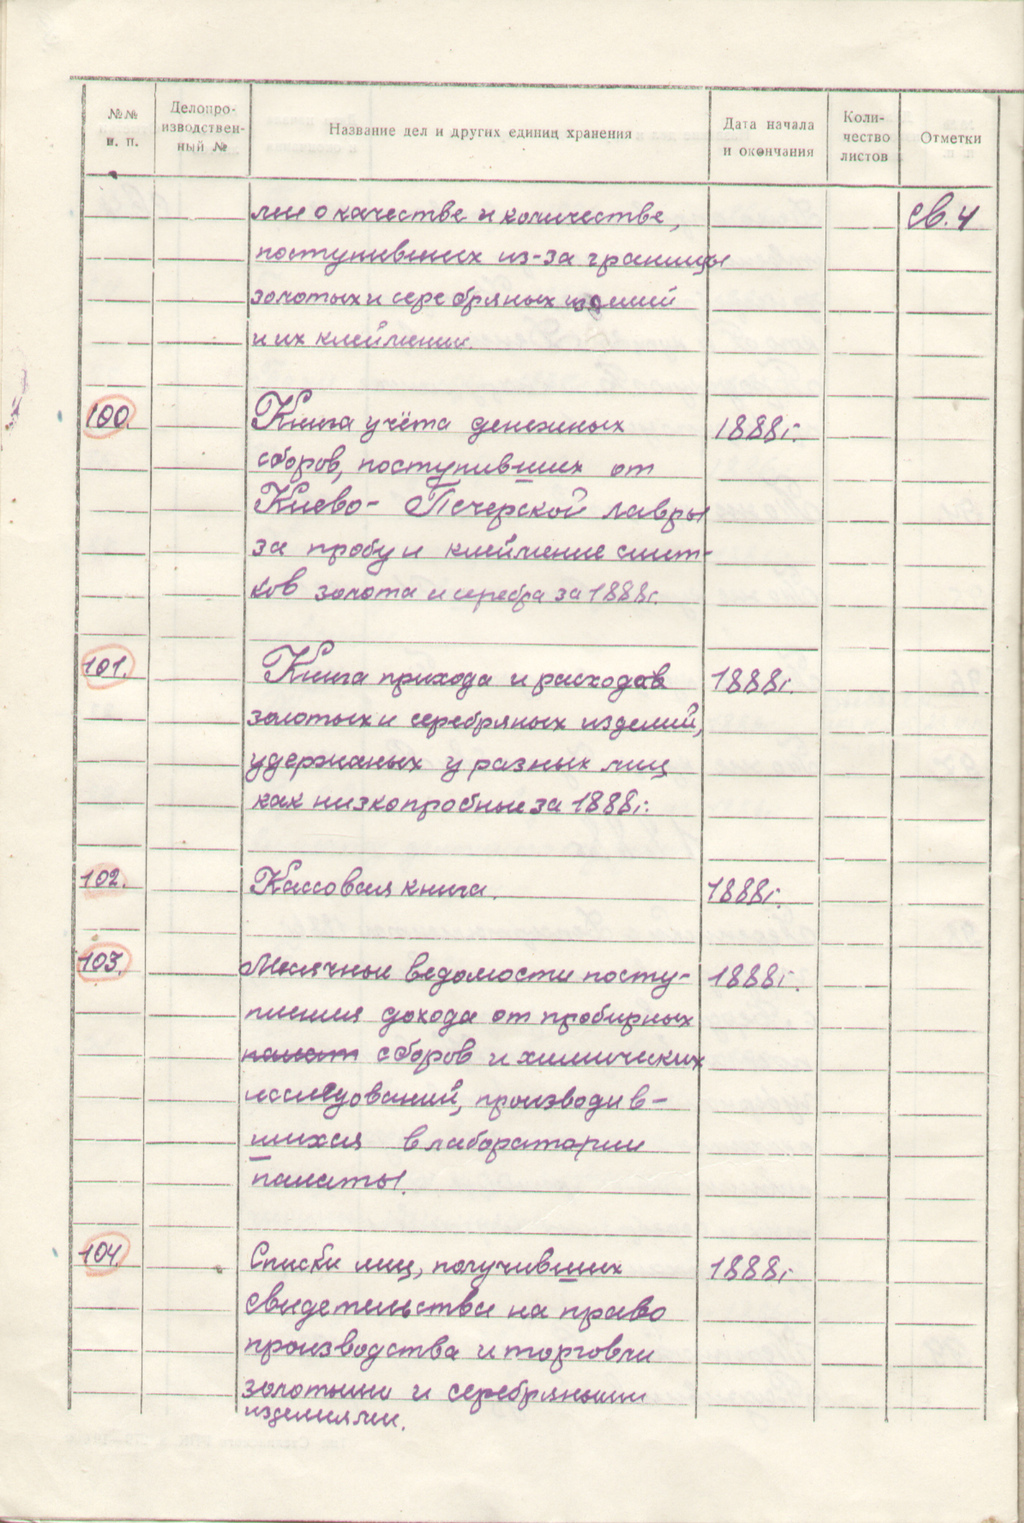 №№ п. п.
Делопроизводственный №
Название дел и других единиц хранения
Дата начала и окончания
Количество листов
Отметки
лии о качестве и количестве, св. 4
поступивших из-за границы
золотых и серебряных изделий
и их клеймении.
100. Книга учёта денежных 1888г.
сборов, поступивших от
Киево-Печерской лавры
за пробу и клеймение слит-
ков золота и серебра за 1888г.
101. Книга прихода и расходов 1888г.
золотых и серебряных изделий,
удержаных у разных лиц
как низкопробные за 1888г.
102. Кассовая книга. 1888г.
103. Месячные ведомости посту- 1888г.
пления дохода от пробирных
палат сборов и химических
исследований, производив-
шихся в лаборатории
палаты.
104. Списки лиц, получивших 1888г.
свидетельства на право
производства и торговли
золотыми и серебряными
изделиями.